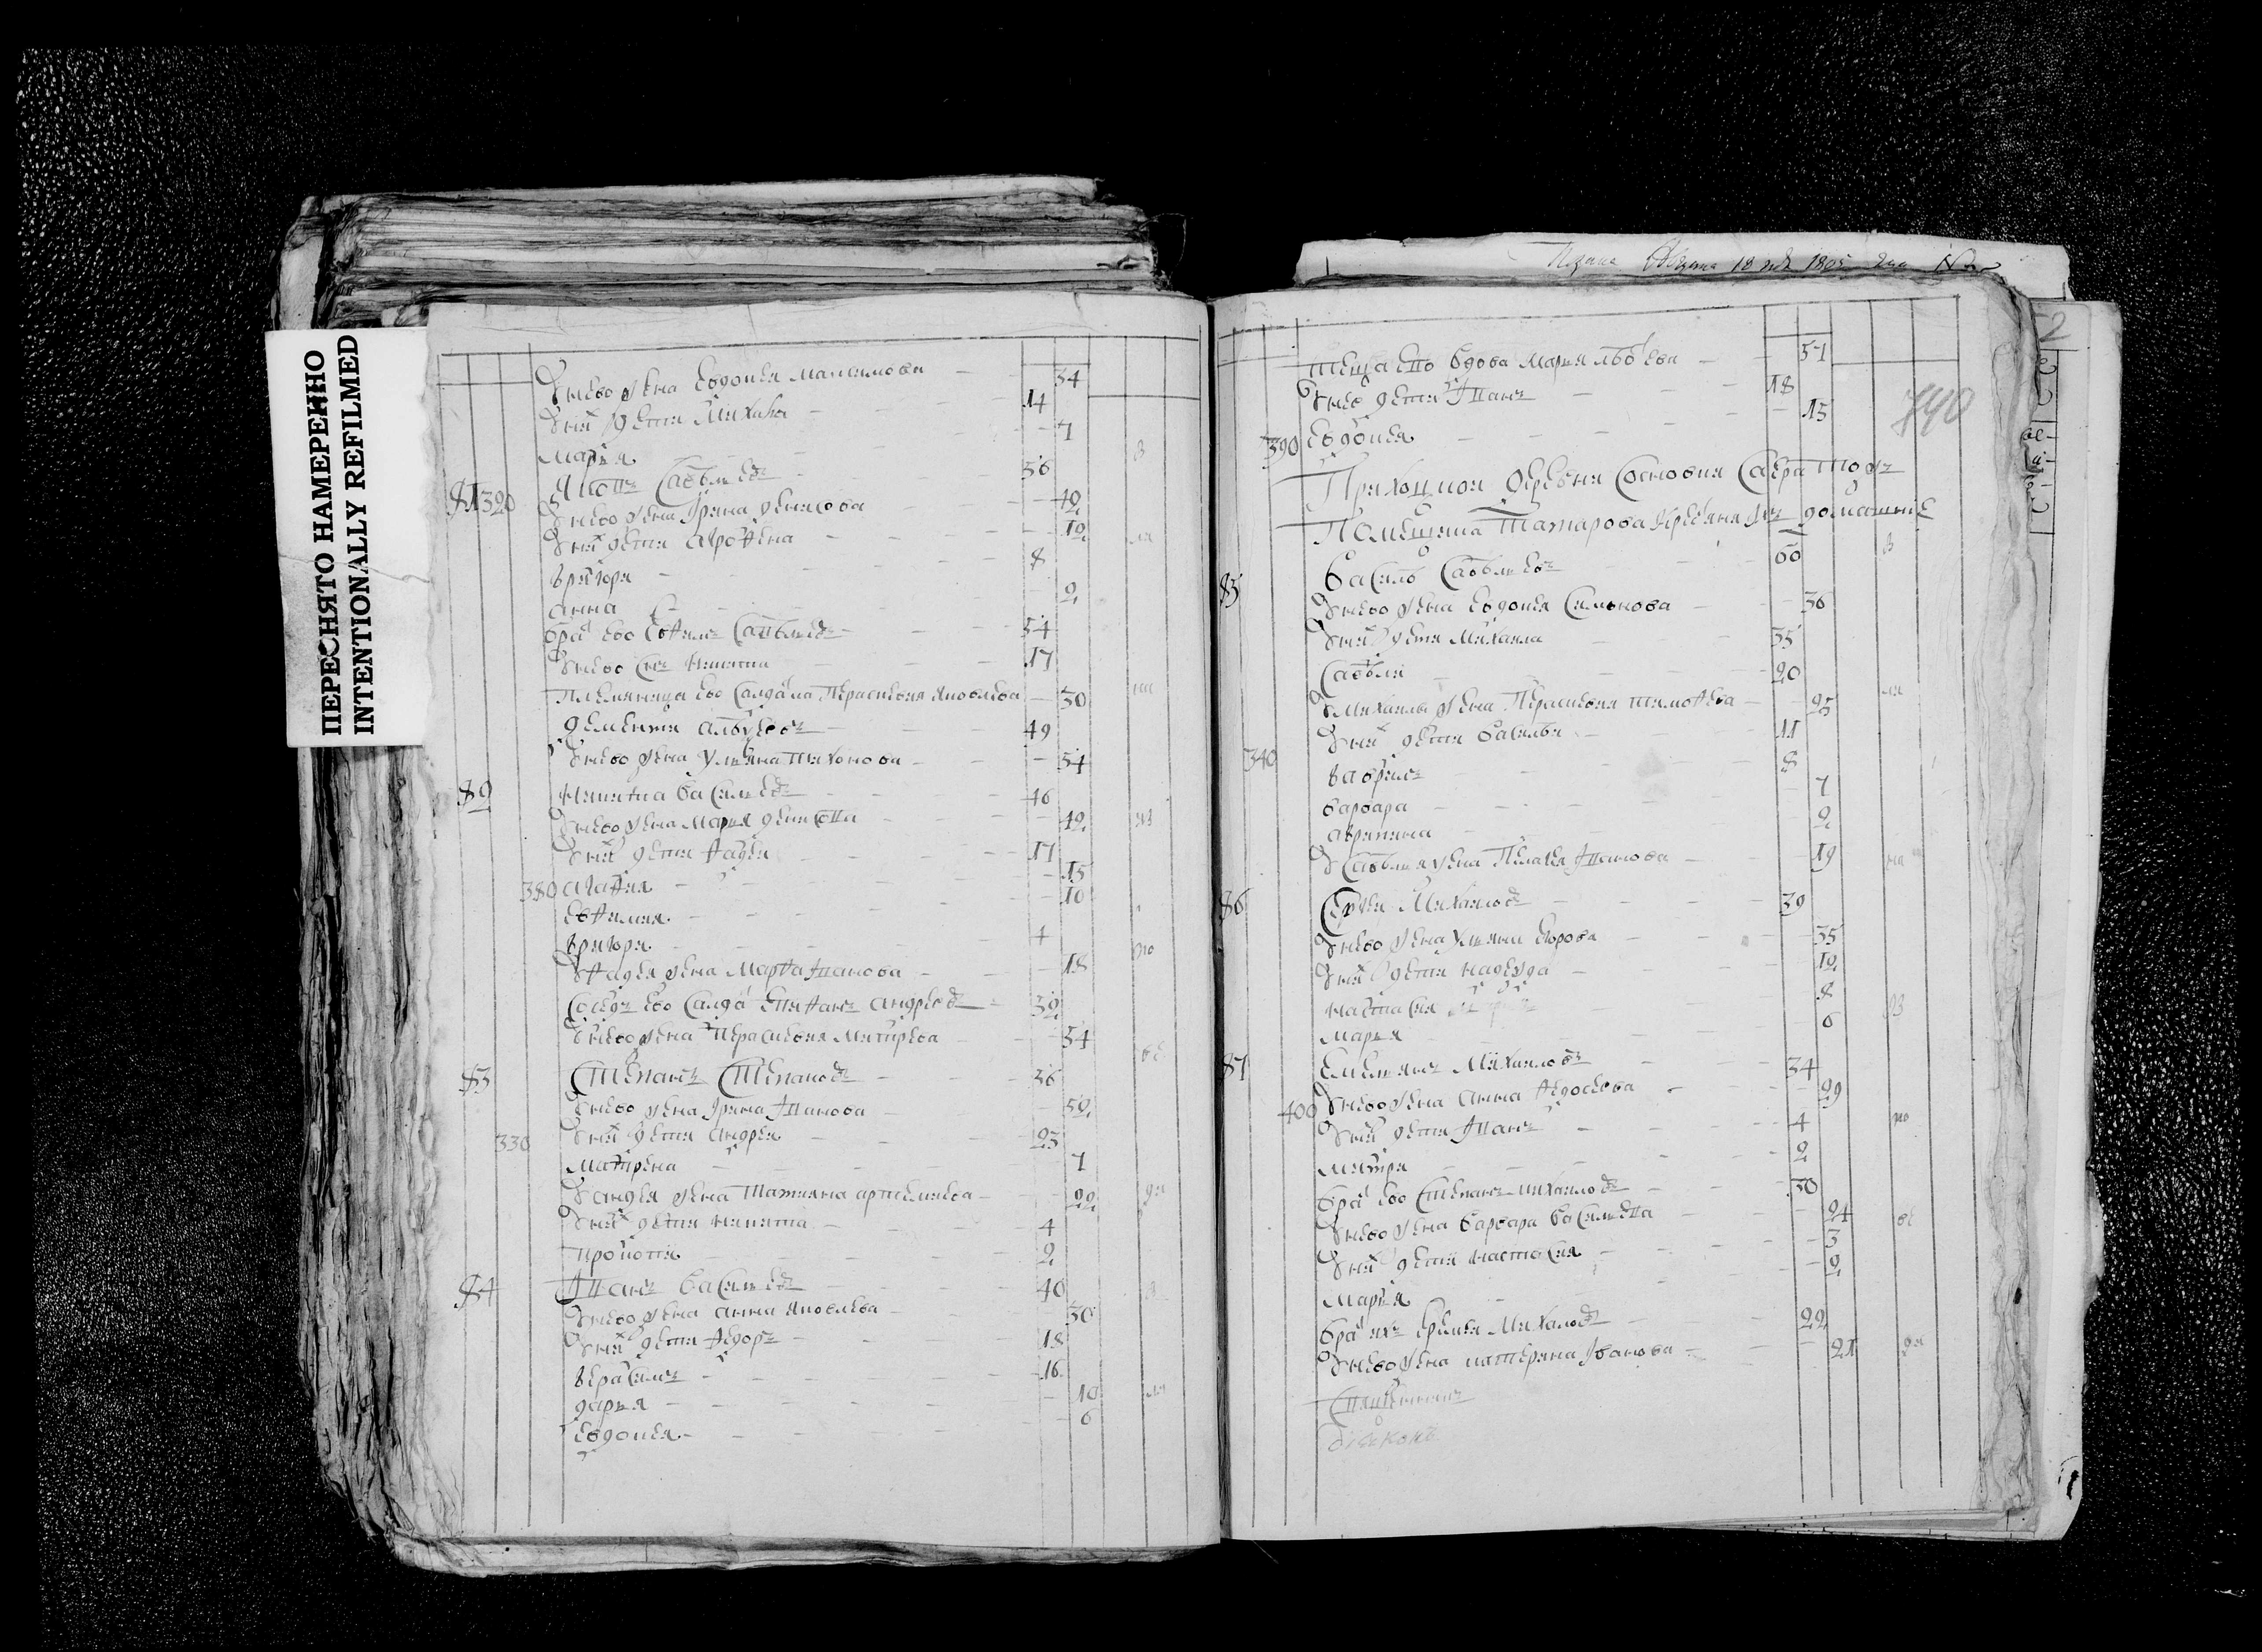 ПЕРЕСНЯТО НАМЕРЕННО
INTENTIONALLY REFILMED
Унево жена Евдокея Максимова 34
Уних дети Михаила 14
Марья 7
81 320 Яков Савельев 56
Унево жена Ирина Денисова 42
Уних дети Аграфена 12
Григори 8
Анна 2
брат ево Ефим Савельев 54
Унево сын Никита 17
Племяница ево салдатка Парасковья Яковлева 30
Дементи 49
Унево жена Ульяна Тихонова 54
82 Никита Васильев 46
Унево жена Марья Денисова 42
Уних дети Фадеи 17
380 Агафия 15
Евфимия 10
Григори 4
Уфадея жена Марфа Иванова 18
Сосед ево салдат Андреев 32
Унево жена Парасковья Митирева 34
83 Степан Степанов 36
Унево жена Ирина Иванова 52
330 Уних дети Андреи 23
Матрена 7
Уандрея жена Татияна Артемиева 22
Уних дети Никита 4
Прокоти 2
84 Иван Васильев 40
Унево жена Анна Яковлева 30
Уних дети Федор 18
Герасим 16
Дарья 10
Евдокея 6
18 1805
Теща ево вдова Марья 51
Унево дети Иван 18
390 Евдокея 15
740
Приходцкой деревни Сосновки
Помещика Татарова крестьяня домашние
85 Василь Савельев 60
Унево жена Евдокея Симонова 36
Уних дети Михаила 35
Савели 20
Умихаилы жена Парасковья Тимофеева 25
Уних дети Василеи 11
340 Гаврил 8
Варвара 7
Акрипина 2
Усавелья жена Пелагея Иванова 19
86 Сергеи Михаилов 39
Унево жена Ульяна Егорова 35
Уних дети Надежда 12
Настасия 8
Марья 6
87 Емельян Михаилов 34
400 Унево жена Анна Федосеева 29
Уних дети Иван 4
Митри 2
брат ево Степан Михаилов 30
Унево жена Варвара Васильева 24
Уних дети Настасия 3
Марья 2
брат их Еремеи Михалов 22
Унево жена Катерина Иванова 21
Священник
диаконъ